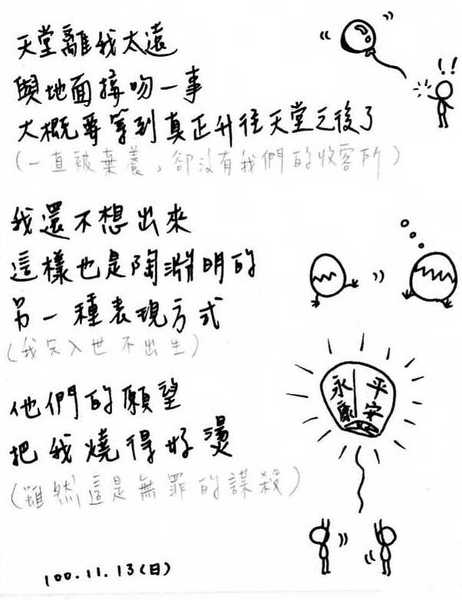 天堂離我太遠
與地面接吻一事
大概要等到真正升往天堂之後了
(一直被棄養，卻沒有我們的收容所)
!!
我還不想出來
這樣也是陶淵明的
另一種表現方式
(我只入世不出生)
他們的願望
把我燒得好燙
(雖然這是無罪的謀殺)
平安
永康
100.11.13(日)